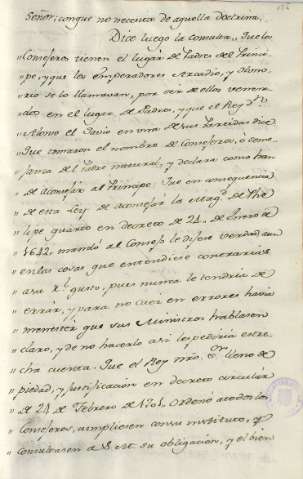 Señor, conque no necesita de aquella doctrina.
Dice luego la consulta, que los
" Consejeros tienen el lugar de Padres del Princi-
" pe, y que los Emperadores Arcadio, y Hono-
" rio se lo llamavan, por ser de ellos venera-
" dos en el lugar de Padres, y que el Rey Dn.
" Alonso el Savio en una de sus Partidas dice
" que tomaron el nombre de Consejeros, a seme-
" janza del Padre natural, y declara como han
" de aconsejar al Principe. Que en consequencia
" de esta Ley de aconsejar la Magd. de Phe
" lipe quarto en decreto de 24 de Enero de
" 1642. mandó al Consejo le dijese verdad aun
" en las cosas que entendiese contrarias
" a su Rl. gusto, pues nunca le tendria de
" errar, y para no caer en errores havia
" menester que sus Ministros hablasen
" claro, y de no hacerlo asi les pediria estre-
" cha cuenta. Que el Rey nro. Sor. lleno de
" piedad, y justificación en decreto circular
" de 24 de Febrero de 1701. Ordenó a todos los
" Consejeros, cumpliesen con su instituto, y
" consultasen a S. M. su obligacion, y el bien